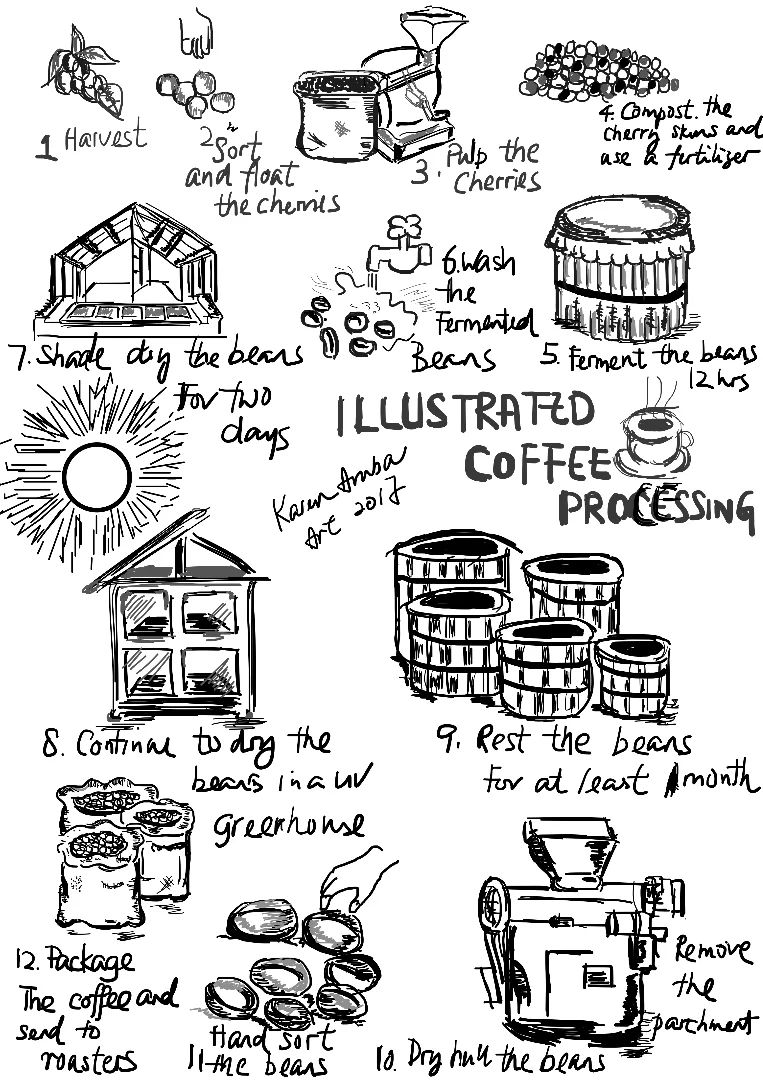 1 Harvest
2 Sort
and float
the cherries
3. Pulp the
Cherries
4. Compost the
cherry skins and
use a fertilizer
5. Ferment the beans
12 hrs
6. Wash
the
Fermented
Beans
7. Shade dry the beans
For two
days
ILLUSTRATED
COFFEE
PROCESSING
Karen
Art 2017
8. Continue to dry the
beans in a UV
greenhouse
9. Rest the beans
for at least 1 month
10. Dry hull the beans
Remove
the
parchment
Hand sort
11 the beans
12. Package
The coffee and
send to
roasters